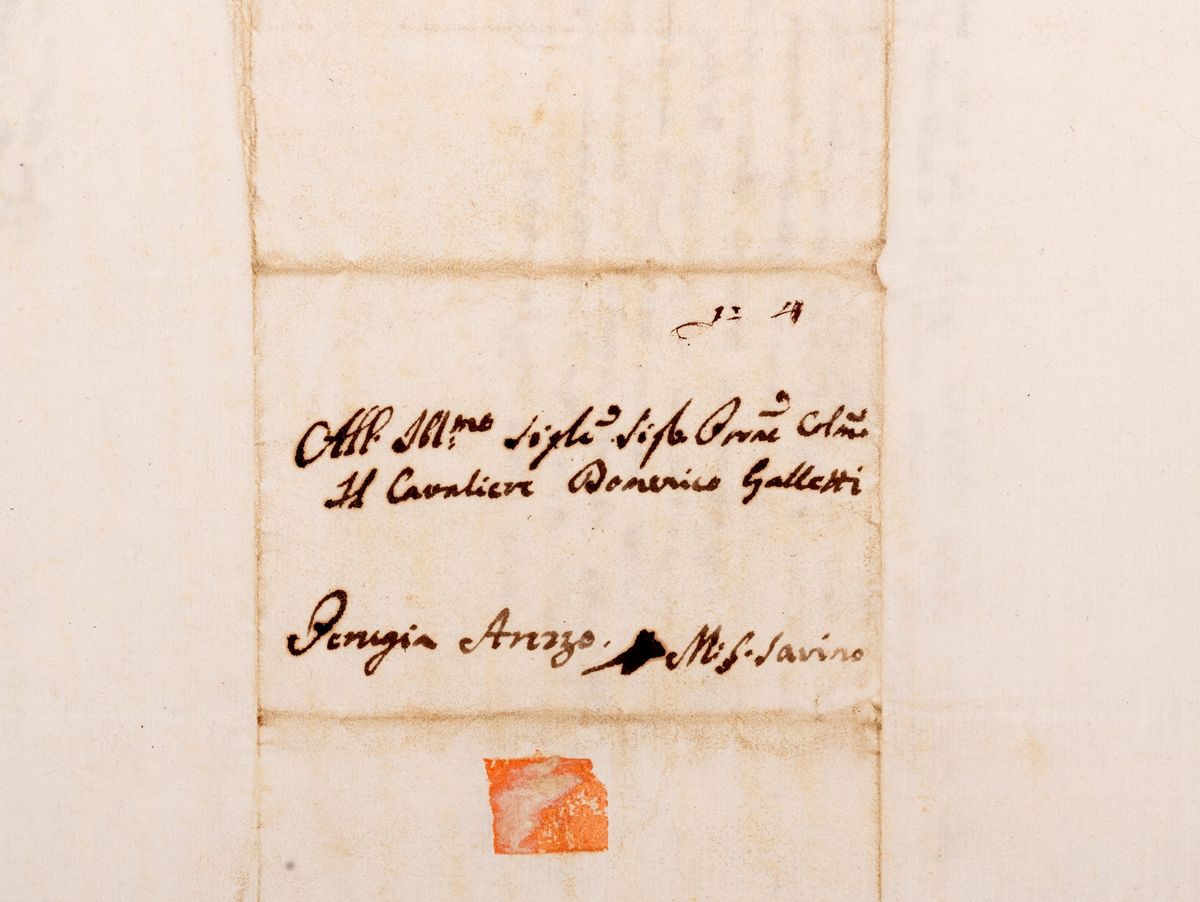 All. Ill:mo Sig.re Sig.re Prone Colmo
Il Cavaliere Domenico Galletti
Perugia Arezzo. M: S. Savino